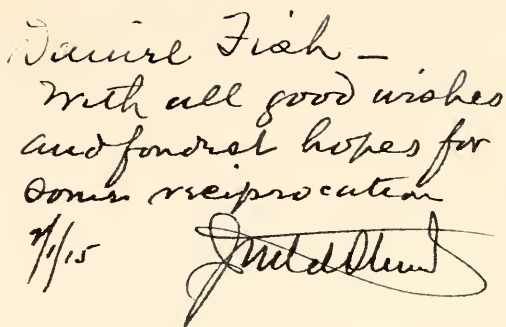 Daniel Fish —
With all good wishes
and fondest hopes for
some reciprocation
/1/15